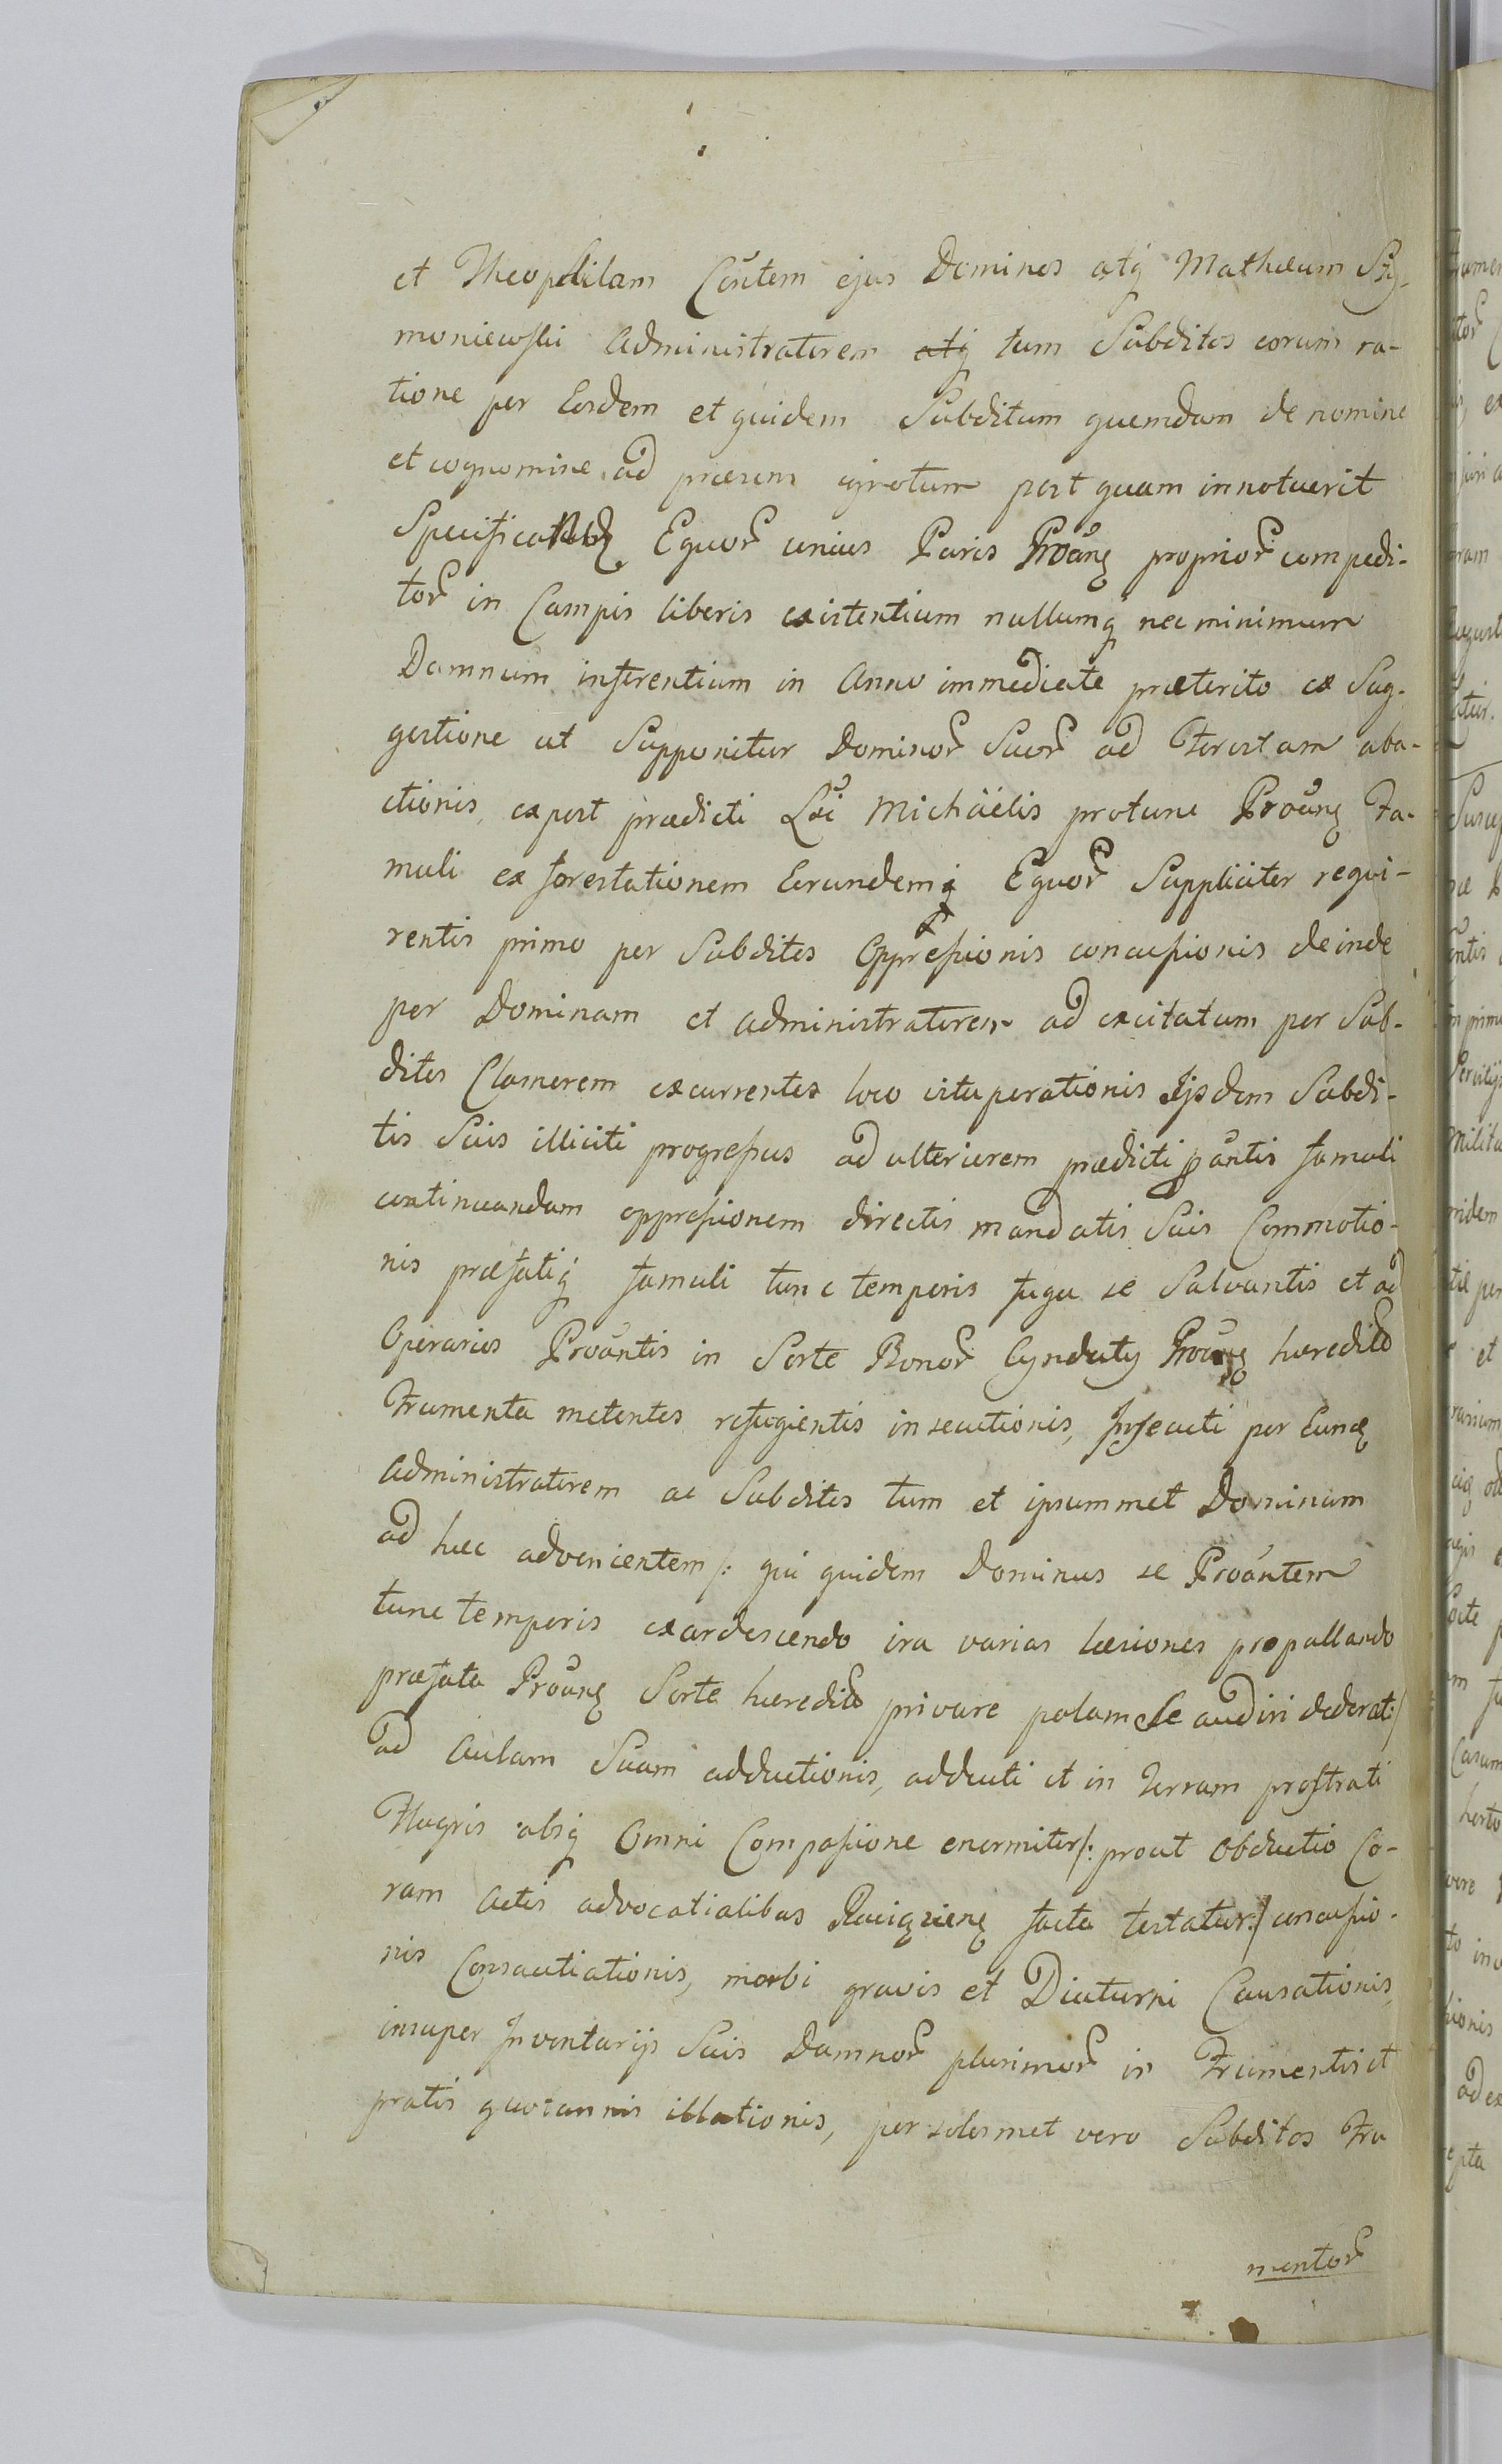 et Theophilam Cõntem ejus Dominos atq Mathæum Szy-
moniewski Administratorem atq tum Subditos eorum ra-
tione per Eosdem et quidem Subditum quemdam de nomine
et cognomine ad præsens ignotum post quam innotuerit
Equor unius Paris Proãnĝ proprior compedi-
tor in Campis liberis existentium nullumq nec minimum
Damnum inferentium in Anno immediate præterito ex Sug-
gestione ut Supponitur Dominor Suor ad Forestam aba-
ctionis, expost prædicti Lxi Michäelis protunc Proãnĝ Fa-
muli ex forestationem Eorundemq Equor Suppliciter requi-
rentis primo per Subditos Oppresionis concusionis deinde
per Dominam et administratorem ad excitatum per Sub-
ditos Clamorem excurrentes loco vituperationis Ijsdem Subdi-
tis Suis illiciti progresus ad ulteriorem prædicti pãntis famuli
continuandam oppresionem directis mandatis Suis Commotio-
nis præfatiq famuli tunc temporis fuga se Salvantis et ad
Operarios Proãntis in Sorte Bonor Gynduty Proãnĝ hæredito
Frumenta metentes refugientis insecutionis, Insecuti per Eunđ
Administratorem ac Subditos tum et ipsummet Dominum
ad hæc advenientem /: qui quidem Dominus se Proãntem
tunc temporis exardescendo ira varias læsiones propallando
præfata Proãnĝ Sorte hæredito privare palam Se audiri dederat:/
ad Aulam Suam adductionis, adducti et in terram prostrati
Flagris absq Omni Compasione enormiter /: prout Obductio Co-
ram Actis advocatialibus facta testatur:/ concusio-
nis Consauciationis, morbi gravis et Diuturni Causationis,
insuper Inventarijs Suis Damnor plurimor in Frumentis et
pratis quotannis illationis, per solosmet vero Subditos Fru
mentor